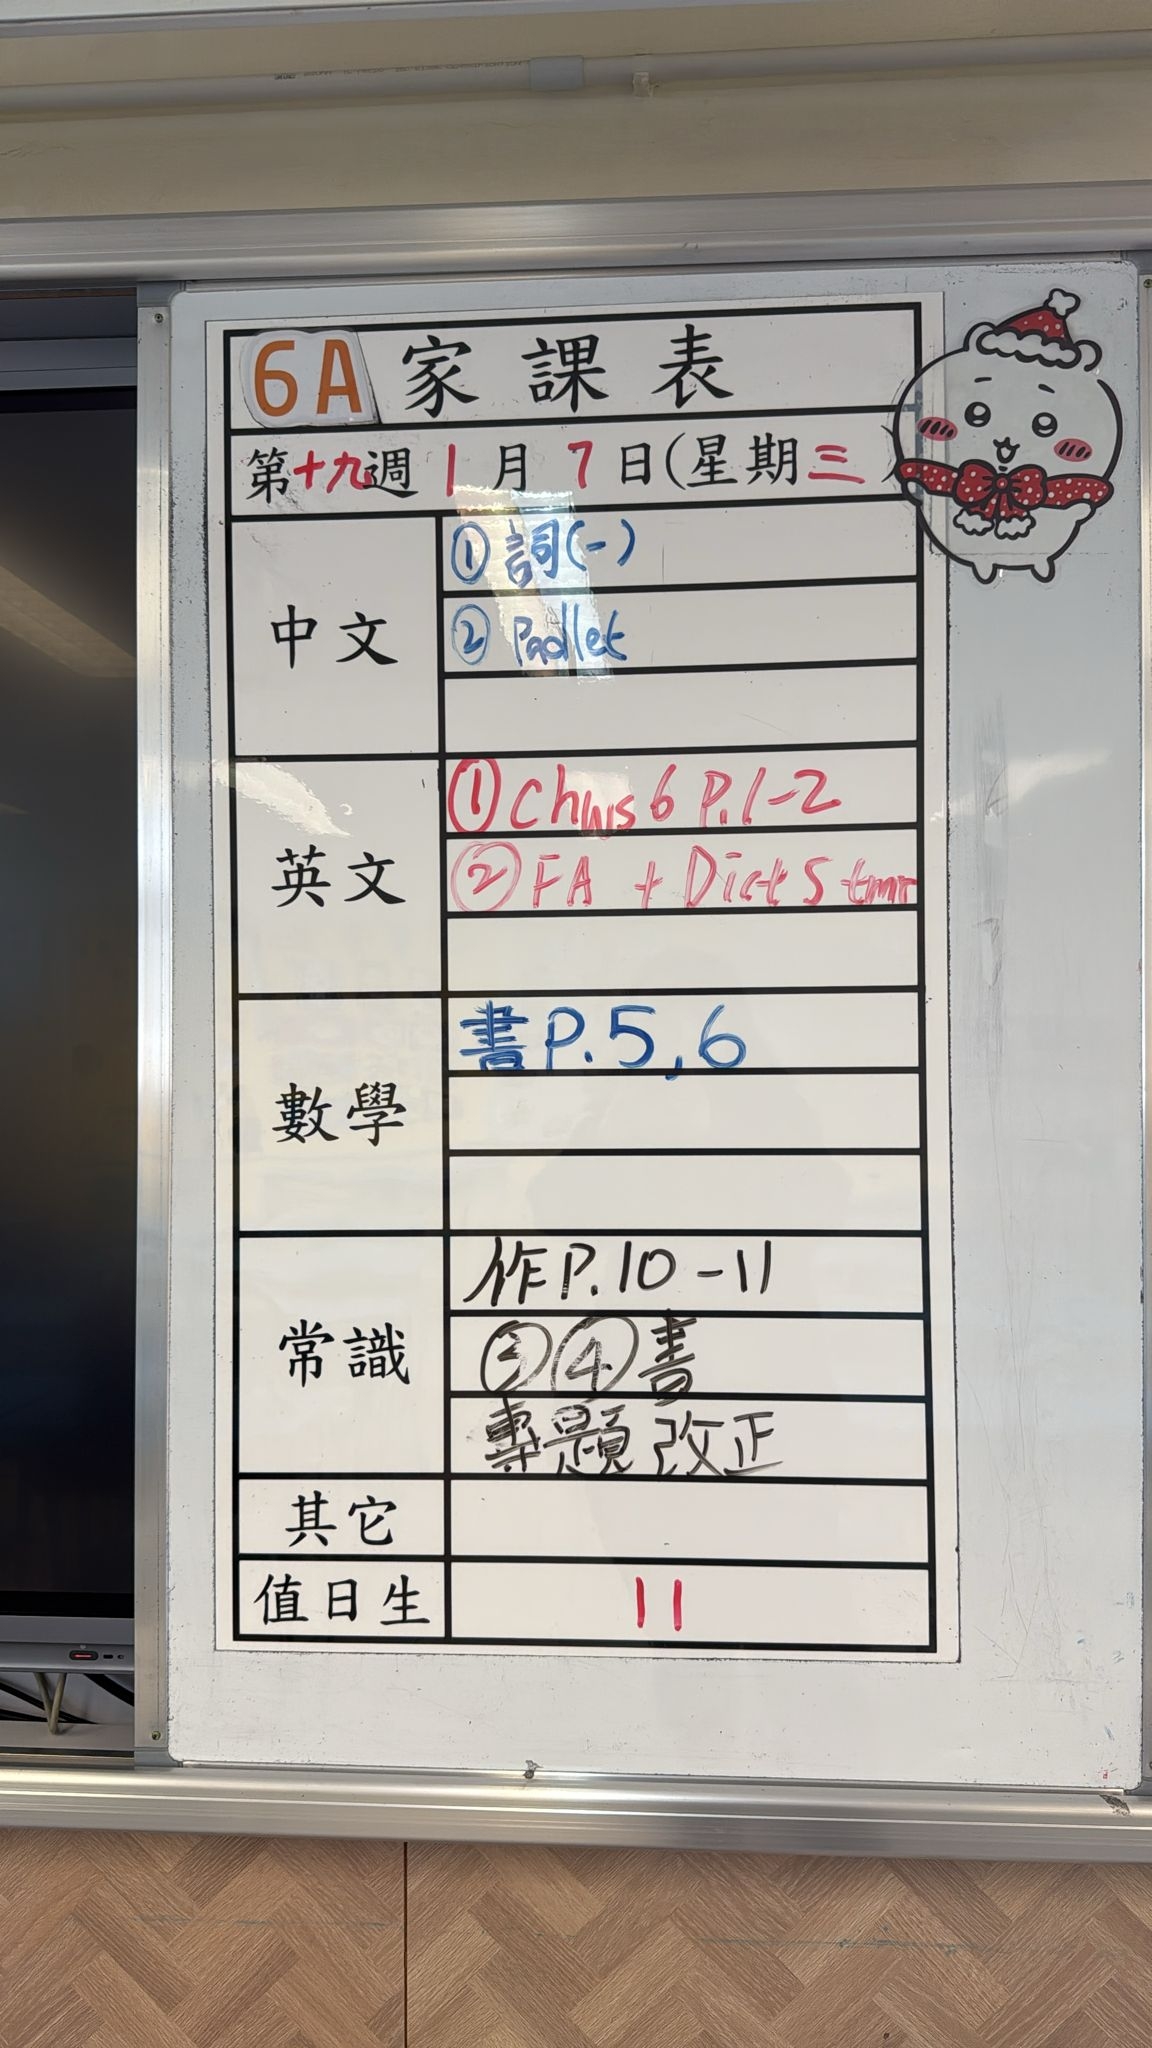 6A 家課表
第十九週 1月7日(星期三)
中文
① 詞(一)
② Padlet
英文
① Ch Ws 6 P.1-2
② FA + Dict 5 tmr
數學
書 P.5,6
常識
作 P.10-11
③④書
專題改正
其它
值日生
11